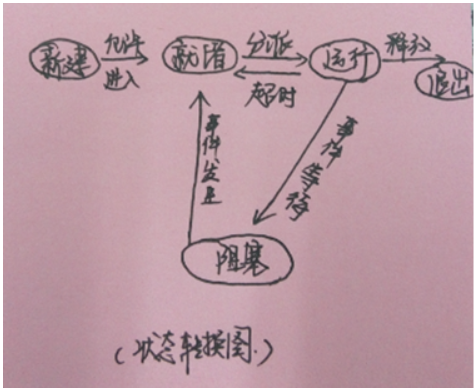 新建
允许
进入
就绪
分派
超时
运行
释放
退出
事件发生
事件等待
阻塞
（状态转换图.）